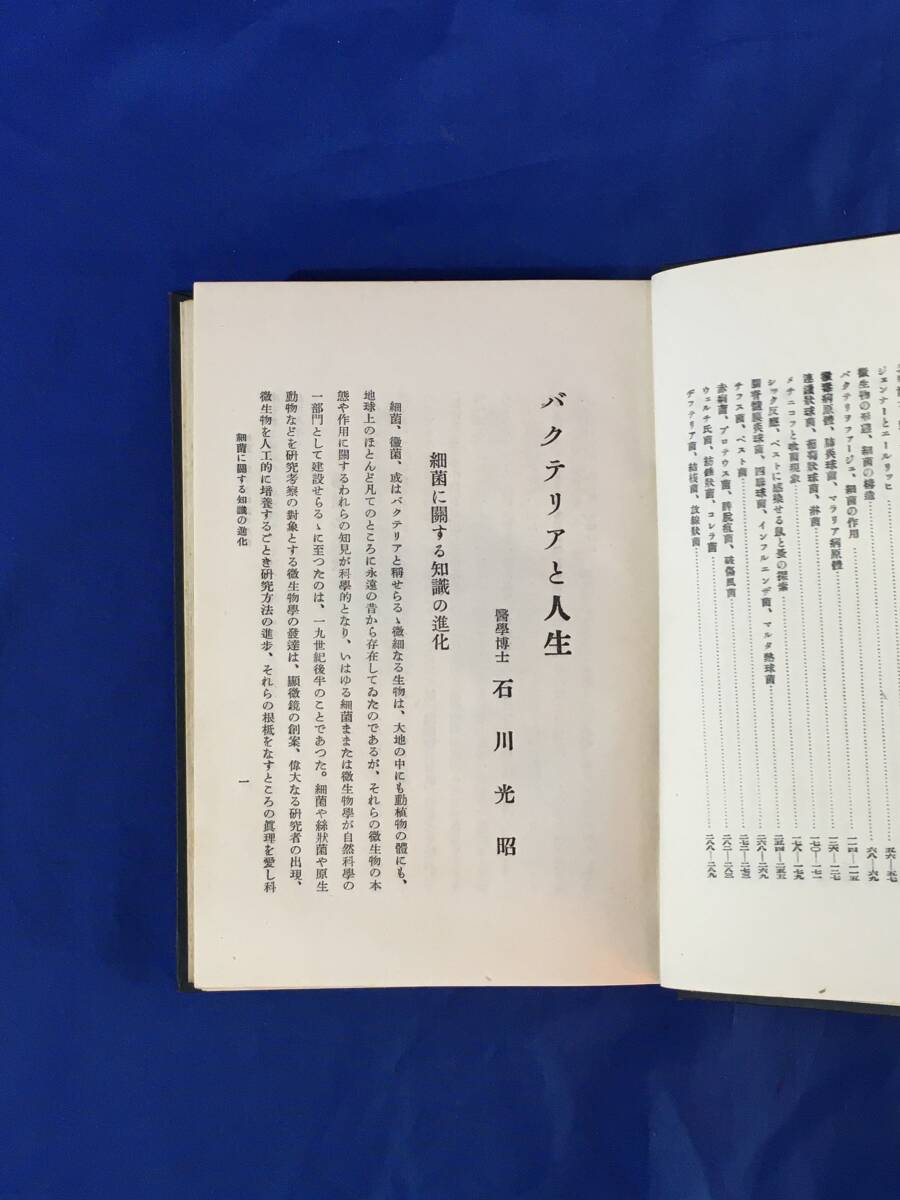 ジェンナーとエールリッヒ……五六―五七
微生物の形態、細菌の構造……六八―六九
バクテリヲファージュ、細菌の作用……一一四―一一五
黴毒病原體、肺炎球菌、マラリア病原體……一二六―一二七
連鎖狀球菌、葡萄狀球菌、淋菌……一七〇―一七一
メチニコフと喰菌現象……一七八―一七九
シック反應、ペストに感染せる鼠と蚤の探索……二五四―二五五
腦脊髓膜炎球菌、四聯球菌、インフルエンザ菌、マルタ熱球菌……二六八―二六九
チフス菌、ペスト菌……二七二―二七三
赤痢菌、プロテウス菌、脾脫疽菌、破傷風菌……二八二―二八三
ウェルチ氏菌、紡錘狀菌、コレラ菌
デフテリア菌、結核菌、放線狀菌……二八八―二八九
バクテリアと人生
醫學博士 石川光昭
細菌に關する知識の進化
細菌、黴菌、或はバクテリアと稱せらるゝ微細なる生物は、大地の中にも動植物の體にも、
地球上のほとんど凡てのところに永遠の昔から存在してゐたのであるが、それらの微生物の本
態や作用に關するわれらの知見が科學的となり、いはゆる細菌ままたは微生物學が自然科學の
一部門として建設せらるゝに至つたのは、一九世紀後半のことであつた。細菌や絲狀菌や原生
動物などを研究考察の對象とする微生物學の發達は、顯微鏡の創案、偉大なる研究者の出現、
微生物を人工的に培養するごとき研究方法の進步、それらの根柢をなすところの眞理を愛し科
細菌に關する知識の進化
一